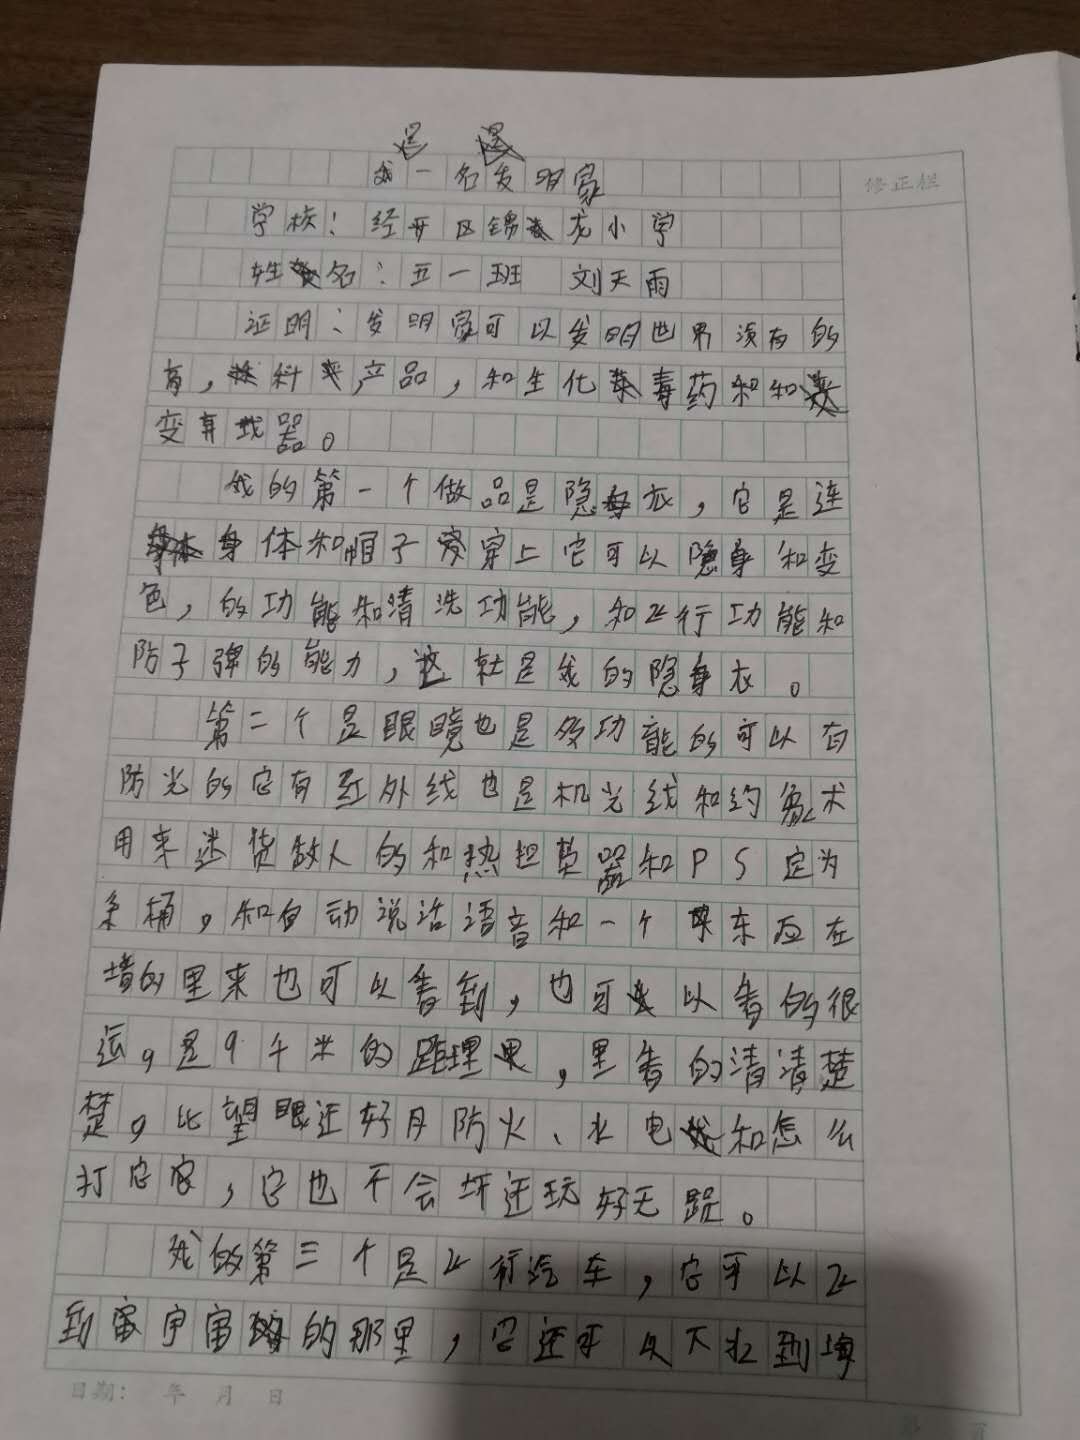 是
我一名发明家
修正栏
学校：经开区锦龙小学
姓名：五一班 刘天雨
证明：发明家可以发明世界须有的
有，科产品，和生化毒药和和
变弃武器。
我的第一个做品是隐身衣，它是连
身体和帽子穿上它可以隐身和变
色，的功能和清洗功能，和飞行功能和
防子弹的能力，这就是我的隐身衣。
第二个是眼镜也是多功能的可以有
防光的它有红外线也是机光线和约象术
用来迷货敌人的和热担势器和PS定为
系桶，和自动说话语音和一个东应在
墙的里来也可以看到，也可以看的很
远，是9千米的距理，里看的清清楚
楚，比望眼还好月防火、水电和怎么
打它家，它也不会坏还玩好无趾。
我的第三个是飞行汽车，它可以飞
到宙宇宙的那里，它还可以下水到海
日期： 年 月 日
第 页